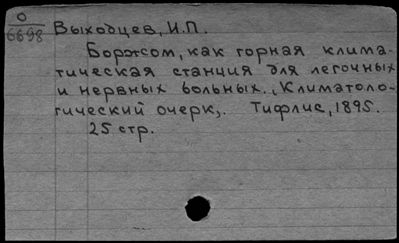 О
6698
Выходцев, И.П.
Боржом, как горная клима-
тическая станция для легочных
и нервных больных. „Климатоло-
гический очерк„. Тифлис, 1895.
25 стр.